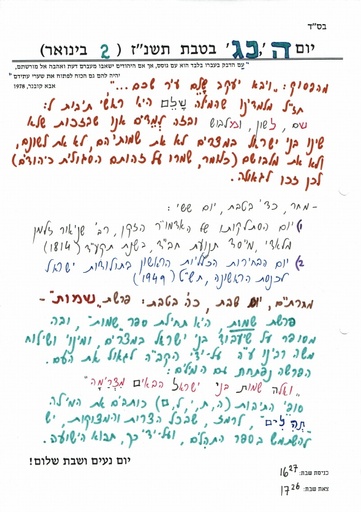 בס"ד
יום ה', כג' בטבת תשנ"ז ( 2 בינואר)
"עַם הדבק בעברו בלבד הוא עם גוסס, אך אם היהודים ישאבו מעברם דעת ואהבה אל מורשתם,
יהיה להם גם הכוח לפתוח את שערי עתידם"
אבא קובנר, 1978
מהפסוק: "ויבא יעקב שָׁלֵם עיר שכם..."
חז"ל מלמדינו שהמילה שָׁלֵם היא ראשי תיבות ל:
שם, לשון, ומלבוש ובזה לְמֵדים אנו שבזכות שלא
שינו בני ישראל במצרים לא את שמותיהם, לא את לשונם,
ולא את מלבושם (כלומר, שמרו על זהותם הסגולית כיהודים)
לכן זכו לגאולה.
- מחר, כד' בטבת, יום שישי:
1) יום הסתלקותו של האדמו"ר הזקן, רב' שניאור זלמן
מלאדי, מיסד תנועת חב"ד, בשנת תקע"ד (1814)
2) יום הבחירות הכלליות הראשון בתולדות ישראל
לכנסת הראשונה, תש"ט (1949)
מחרתיים, יום שבת, כה' בטבת: פרשת "שמות"-
פרשת שמות, היא תחילת ספר "שמות", ובה
מסופר על שיעבוד בני ישראל במצרים, ומינוי ושילוח
משה רבינו ע"ה על-ידי הקב"ה לגאול את העם.
הפרשה נפתחת עם המלים:
"ואלה שמות בני ישראל הבאים מצרָימה"
סופי התיבות (ה,ת,י,ל,ם) כותבים את המילה
"תְהִלִּים", לרמז, שבכל הצרות והמצוקות, יש
להשתמש בספר התהלים, ועל-ידי כך, תבוא הישועה.
יום נעים ושבת שלום!
כניסת שבת: 16²⁷
צאת שבת: 17²⁶